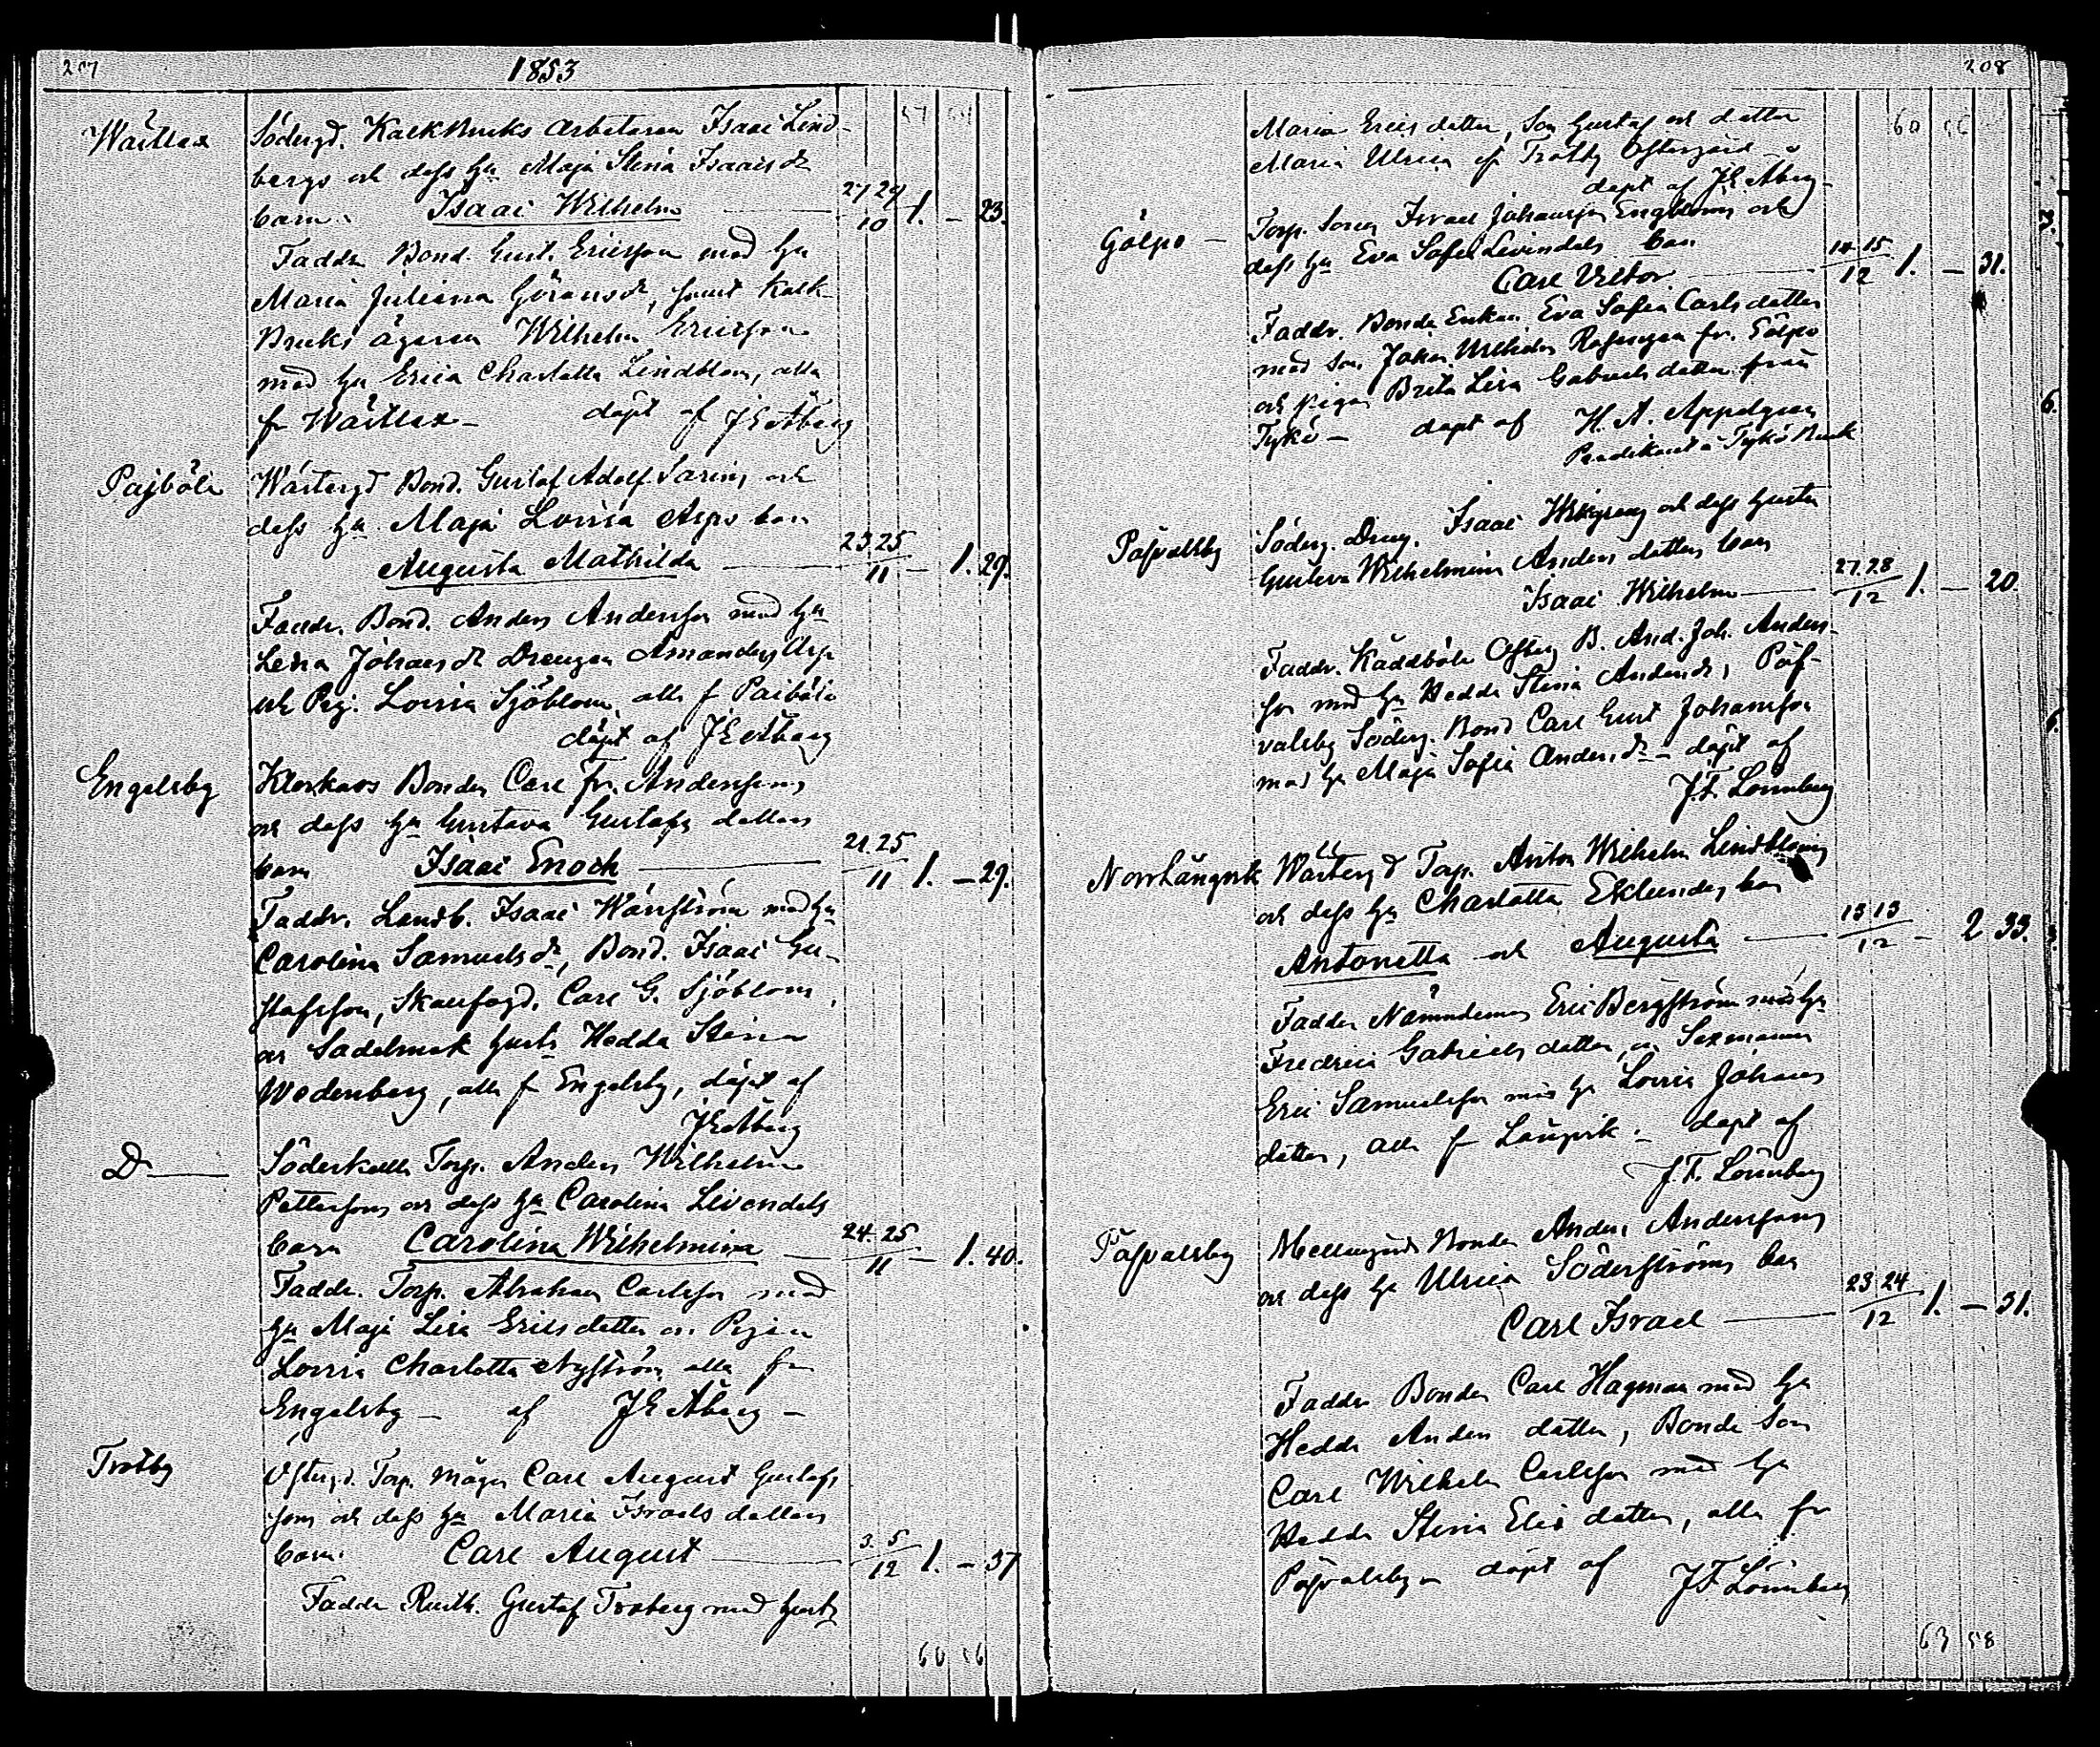 207
1853
Wättlax
Södergd. Kalkbruks arbetaren Isaac Lind-
bergs och dess hu Maja Stina Isaacsdr
barn. Isaac Wilhelm 27 29/10 1. – 23.
Faddr. Bond. Gust. Ericsson med hu
Maria Juliana Göransdr, samt Kalk-
bruks ägaren Wilhelm Ericsson
med hu Erica Charlotta Lindblom, alla
fr Wättlax – döpt af J E Åberg
Pajböle
Wästergd Bond. Gustaf Adolf Sarins och
dess hu. Maja Lovisa Arps barn
Augusta Mathilda 23 25/11 – 1. 29.
Faddr. Bond. Anders Andersson med hu
Lena Johansdr Drengen Amandus Arp
och Pig. Lovisa Sjöblom alla f Paiböle
döpt af J E Åberg
Engelsby
Klockars Bonden Carl Fr. Anderssons
och dess hu Gustava Gustafs dotters
barn Isaac Enoch 21. 25/11 1. – 29.
Faddr. Landb. Isaac Wånström med hu
Carolina Samuelsdr, Bond. Isaac Gu-
stafsson, Skaffogd. Carl G. Sjöblom,
och Sadelmak hustr Hedda Stina
Wedenberg, alla f Engelsby, döpt af
J E Åberg
D
Söderkulla Torp. Anders Wilhelm
Petterssons och dess hu Carolina Livendals
barn Carolina Wilhelmina 24. 25/11 – 1. 40.
Faddr. Torp. Abraham Carlsson med
hu Maja Lisa Ericsdotter och Pigan
Lovisa Charlotta Nyström alla fr
Engelsby – af J E Åberg –
Trotby
Östergd. Torp. mågen Carl August Gustafs
sons och dess hu Maria Israels dotters
barn. Carl August 3. 5/12 1. – 37
Faddr Rusth. Gustaf Troberg med hustr
60 56
208
60 56
Maria Ericsdotter, Son Gustaf och dotter
Maria Ulrica af Trotby Östergård –
döpt af J E Åberg –
Gölpo –
Torp. Sonen Israel Johansson Engbloms och
dess hu Eva Sofia Livendals barn
Carl Victor 14 15/12 1. – 31.
Faddr. Bonde Enkan Eva Sofia Carlsdotter
med son Johan Wilhelm fr. Gölpo
och pigan Brita Lisa Gabriels dotter från
Tykö – döpt af H. A. Appelgren
Predikant i Tykö Bruk
Påfvalsby
Söderg. Dreng. Isaac Wikgren och dess hustru
Gustava Wilhelmina Anders dotters barn
Isaac Wilhelm 27. 28/12 1. – 20.
Faddr. Käddböle Östeg B. And. Joh. Anders-
son med hu Hedda Stina Andersdr, Påf-
valsby Söderg. Bond Carl Gust Johansson
med hu Maja Sofia Andersdr – döpt af
J. F. Lönnberg
Norrlångvik
Wästergd Torp. Anton Wilhelm Lindbloms
och dess hu Charlotta Eklunds barn
Antonetta och Augusta 13 13/12 – 2 33.
Faddr Nämndeman Eric Bergström med hu
Fredrica Gabriels dotter, och Sexmannen
Eric Samuelsson med hu Lovisa Johans
dotter, alla f Långvik. döpt af
J. F. Lönnberg
Påfvalsby
Mellangårds Bonden Anders Anderssons
och dess hu Ulrica Söderströms barn
Carl Israel 23 24/12 1. – 31.
Faddr Bonden Carl Hagman med hu
Hedda Anders dotter, Bonde Son
Carl Wilhelm Carlsson med hu
Hedda Stina Elis dotter, alla fr
Påfvalsby – döpt af J F Lönnberg
63 58